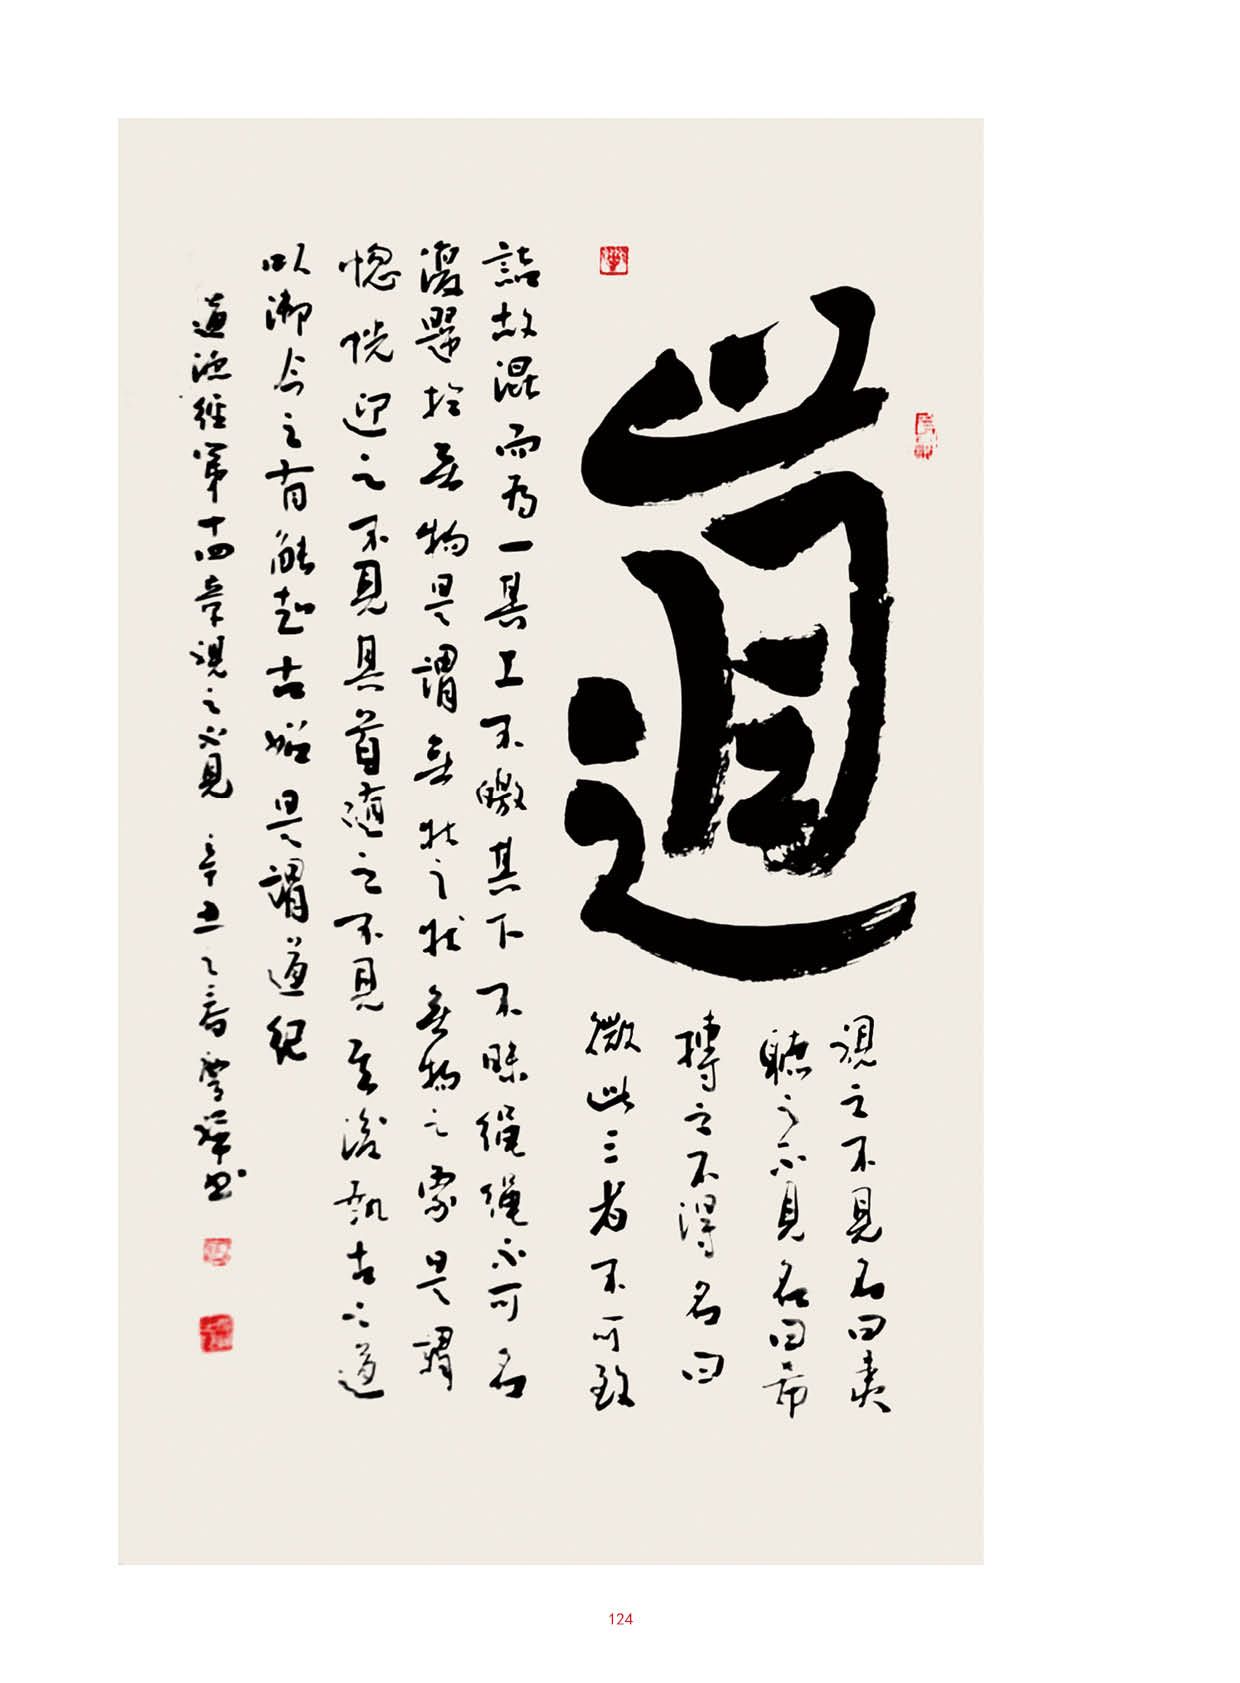 道
視之不見名曰夷
聽之不見名曰希
搏之不得名曰
微此三者不可致
詰故混而為一其上不皦其下不昧繩繩不可名
復歸於無物是謂無狀之狀無物之象是謂
惚恍迎之不見其首隨之不見其後執古之道
以御今之有能知古始是謂道紀
道德經第十四章視之不見 辛丑之春 書
124